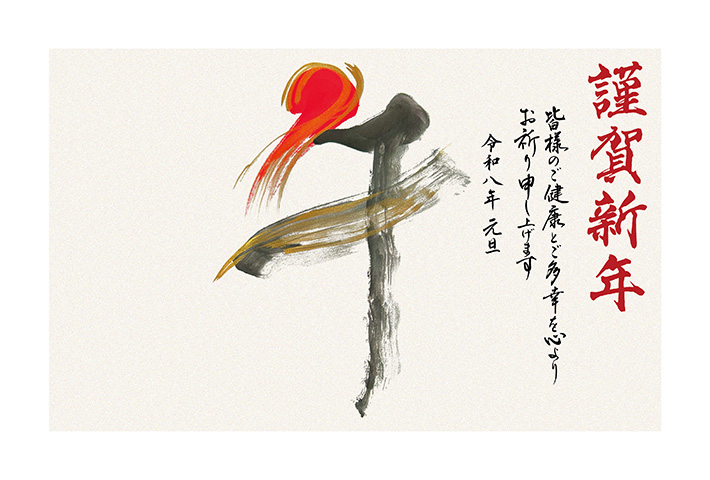 謹賀新年
皆様のご健康とご多幸を心より
お祈り申し上げます
令和八年 元旦
午